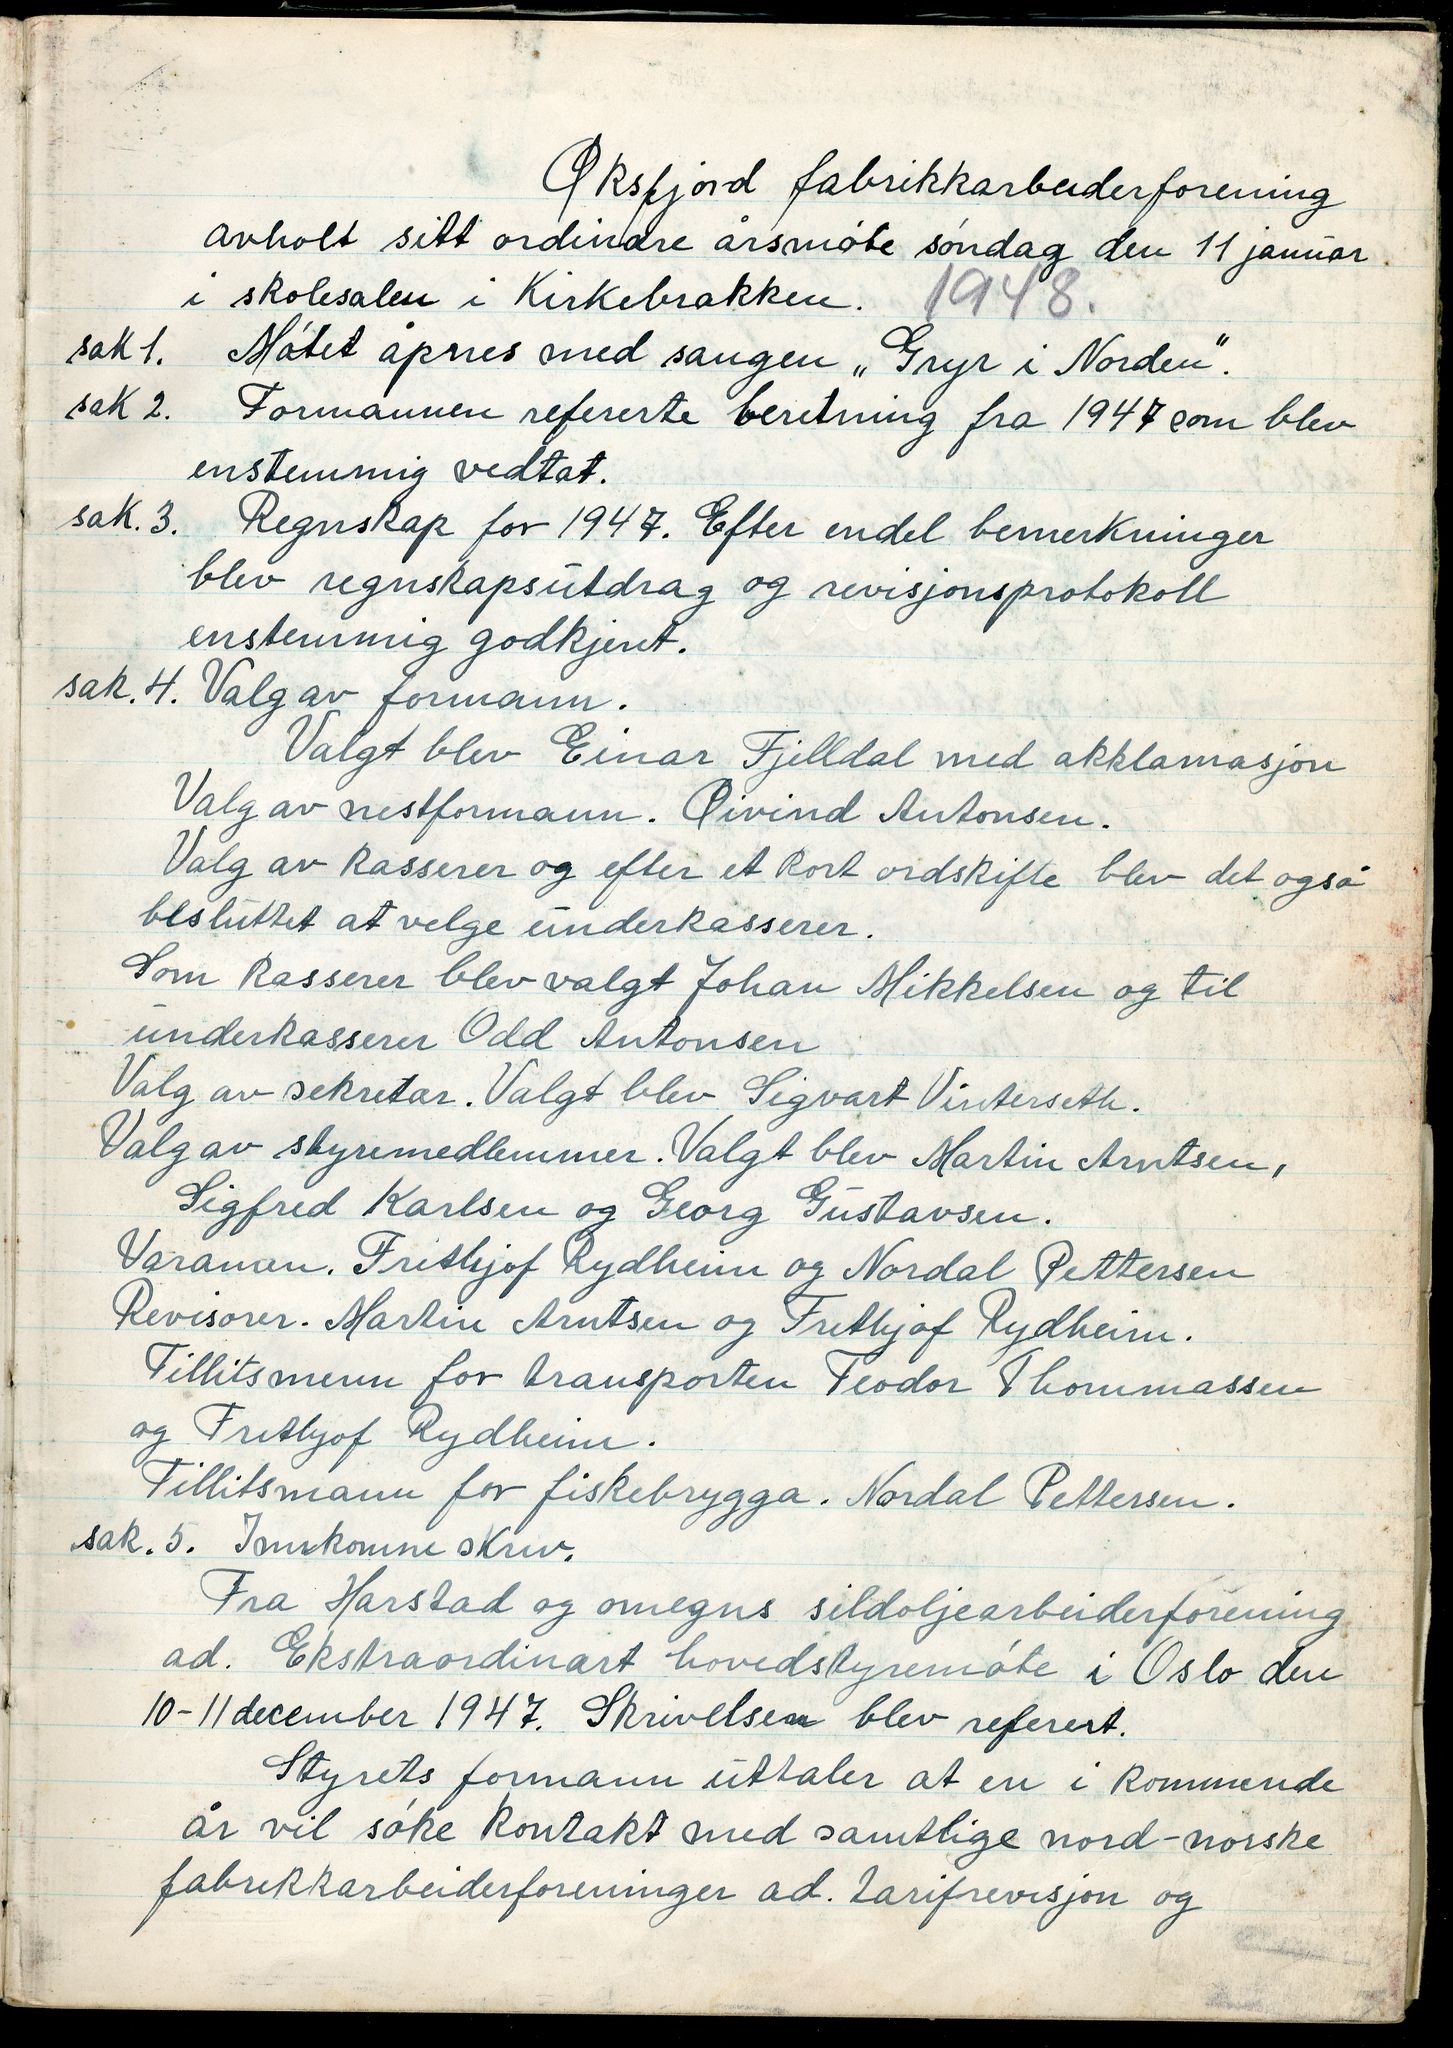 Øksfjord fabrikkarbeiderforening
avholt sitt ordinære årsmöte söndag den 11 januar
i skolesalen i Kirkebrakken. 1948.
sak 1. Mötet åpnes med sangen „Gryr i Norden".
sak 2. Formannen refererte beretning fra 1947 som blev
enstemmig vedtat.
sak. 3. Regnskap for 1947. Efter endel bemerkninger
blev regnskapsutdrag og revisjonsprotokoll
enstemmig godkjent.
sak. 4. Valg av formann.
Valgt blev Einar Fjelldal med akklamasjon
Valg av nestformann. Øivind Antonsen.
Valg av kasserer og efter et kort ordskifte blev det også
besluttet at velge underkasserer.
Som kasserer blev valgt Johan Mikkelsen og til
underkasserer Odd Antonsen
Valg av sekretær. Valgt blev Sigvart Vinterseth.
Valg av styremedlemmer. Valgt blev Martin Arntsen,
Sigfred Karlsen og Georg Gustavsen.
Varamen. Frithjof Rydheim og Nordal Pettersen
Revisorer. Martin Arntsen og Frethjof Rydheim.
Tillitsmenn for transporten Teodor Thommassen
og Frethjof Rydheim.
Tillitsmann for fiskebrygga. Nordal Pettersen.
sak. 5. Innkomne skriv.
Fra Harstad og omegns sildoljearbeiderforening
ad. Ekstraordinært hovedstyremöte i Oslo den
10-11 december 1947. Skrivelsen blev referert.
Styrets formann uttaler at en i kommende
år vil söke kontakt med samtlige nord-norske
fabrikkarbeiderforeninger ad. tarifrevisjon og